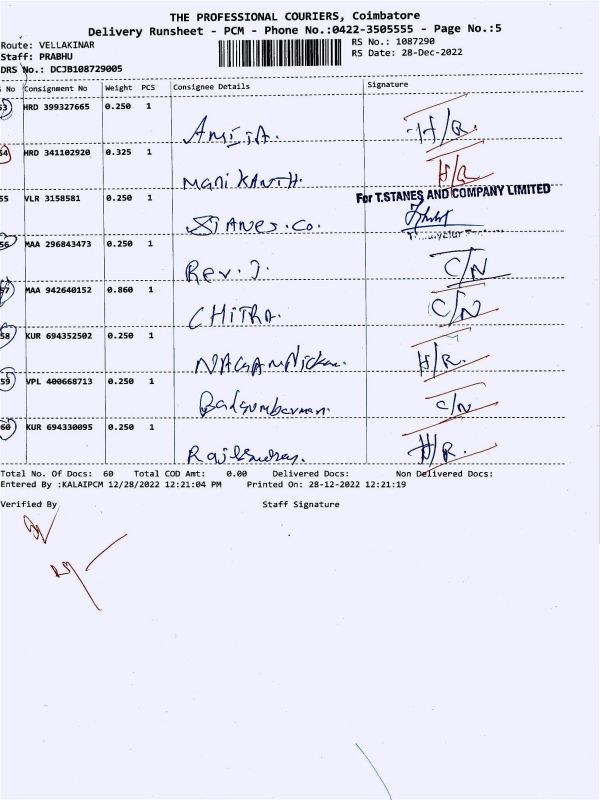 THE PROFESSIONAL COURIERS, Coimbatore
Delivery Runsheet - PCM - Phone No.:0422-3505555 - Page No.:5
Route: VELLAKINAR
RS No.: 1087290
Staff: PRABHU
RS Date: 28-Dec-2022
DRS No.: DCJB108729005
No Consignment No Weight PCS Consignee Details Signature
53 HRD 399327665 0.250 1
H/R
54 HRD 341102920 0.325 1
H/R
Mani KANTH.
55 VLR 3158581 0.250 1
For T.STANES AND COMPANY LIMITED
STANES.CO.
56 MAA 296843473 0.250 1
Rev. J. C/N
57 MAA 942640152 0.860 1
CHITRA. C/N
58 KUR 694352502 0.250 1
H/R.
59 VPL 400668713 0.250 1
C/N
60 KUR 694330095 0.250 1
H/R.
Total No. Of Docs: 60 Total COD Amt: 0.00 Delivered Docs: Non Delivered Docs:
Entered By :KALAIPCM 12/28/2022 12:21:04 PM Printed On: 28-12-2022 12:21:19
Verified By Staff Signature